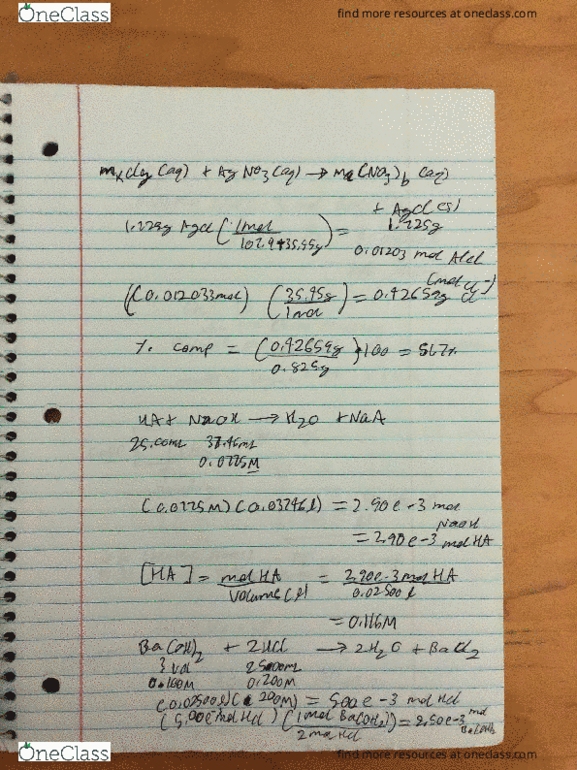 OneClass
find more resources at oneclass.com
MxCly (aq) + AgNO3 (aq) → Ma(NO3)b (aq)
+ AgCl (s)
1.725g
1.725g AgCl (1mol / 107.9+35.45g) =
0.01203 mol AgCl
(0.012033mol) (35.45g / 1mol) = 0.42659g Cl
(mol Cl-)
% comp = (0.42659g / 0.825g) 100 = 51.7%
HA + NaOH → H2O + NaA
25.00mL 37.46mL
0.0775M
(0.0775M)(0.03746L) = 2.90e-3 mol
NaOH
= 2.90e-3 mol HA
[HA] = mol HA / Volume (L) = 2.90e-3 mol HA / 0.02500 L
= 0.116M
Ba(OH)2 + 2HCl → 2H2O + BaCl2
? vol 25.00mL
0.100M 0.200M
(0.02500L)(0.200M) = 5.00e-3 mol HCl
(5.00e-3 mol HCl) (1mol Ba(OH)2 / 2mol HCl) = 2.50e-3 mol Ba(OH)2
OneClass
find more resources at oneclass.com